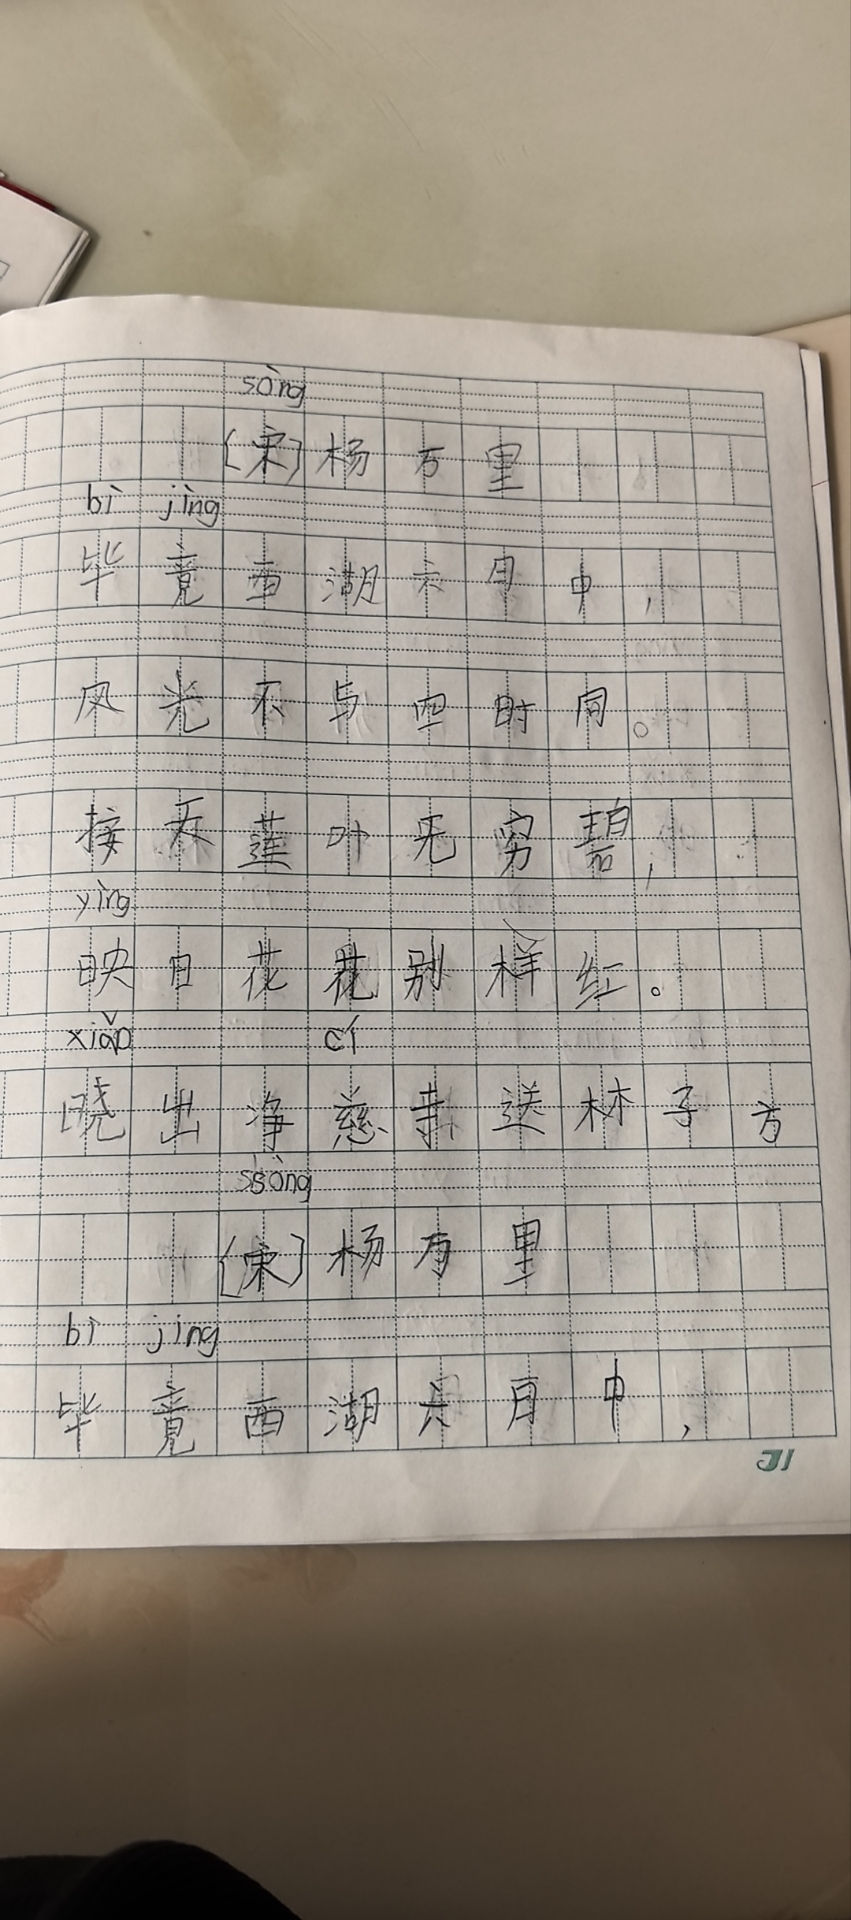 sòng
[宋]杨万里
bì jìng
毕竟西湖六月中，
风光不与四时同。
接天莲叶无穷碧，
yìng
映日花花别样红。
xiǎo cí
晓出净慈寺送林子方
sòng
[宋]杨万里
bì jìng
毕竟西湖六月中，